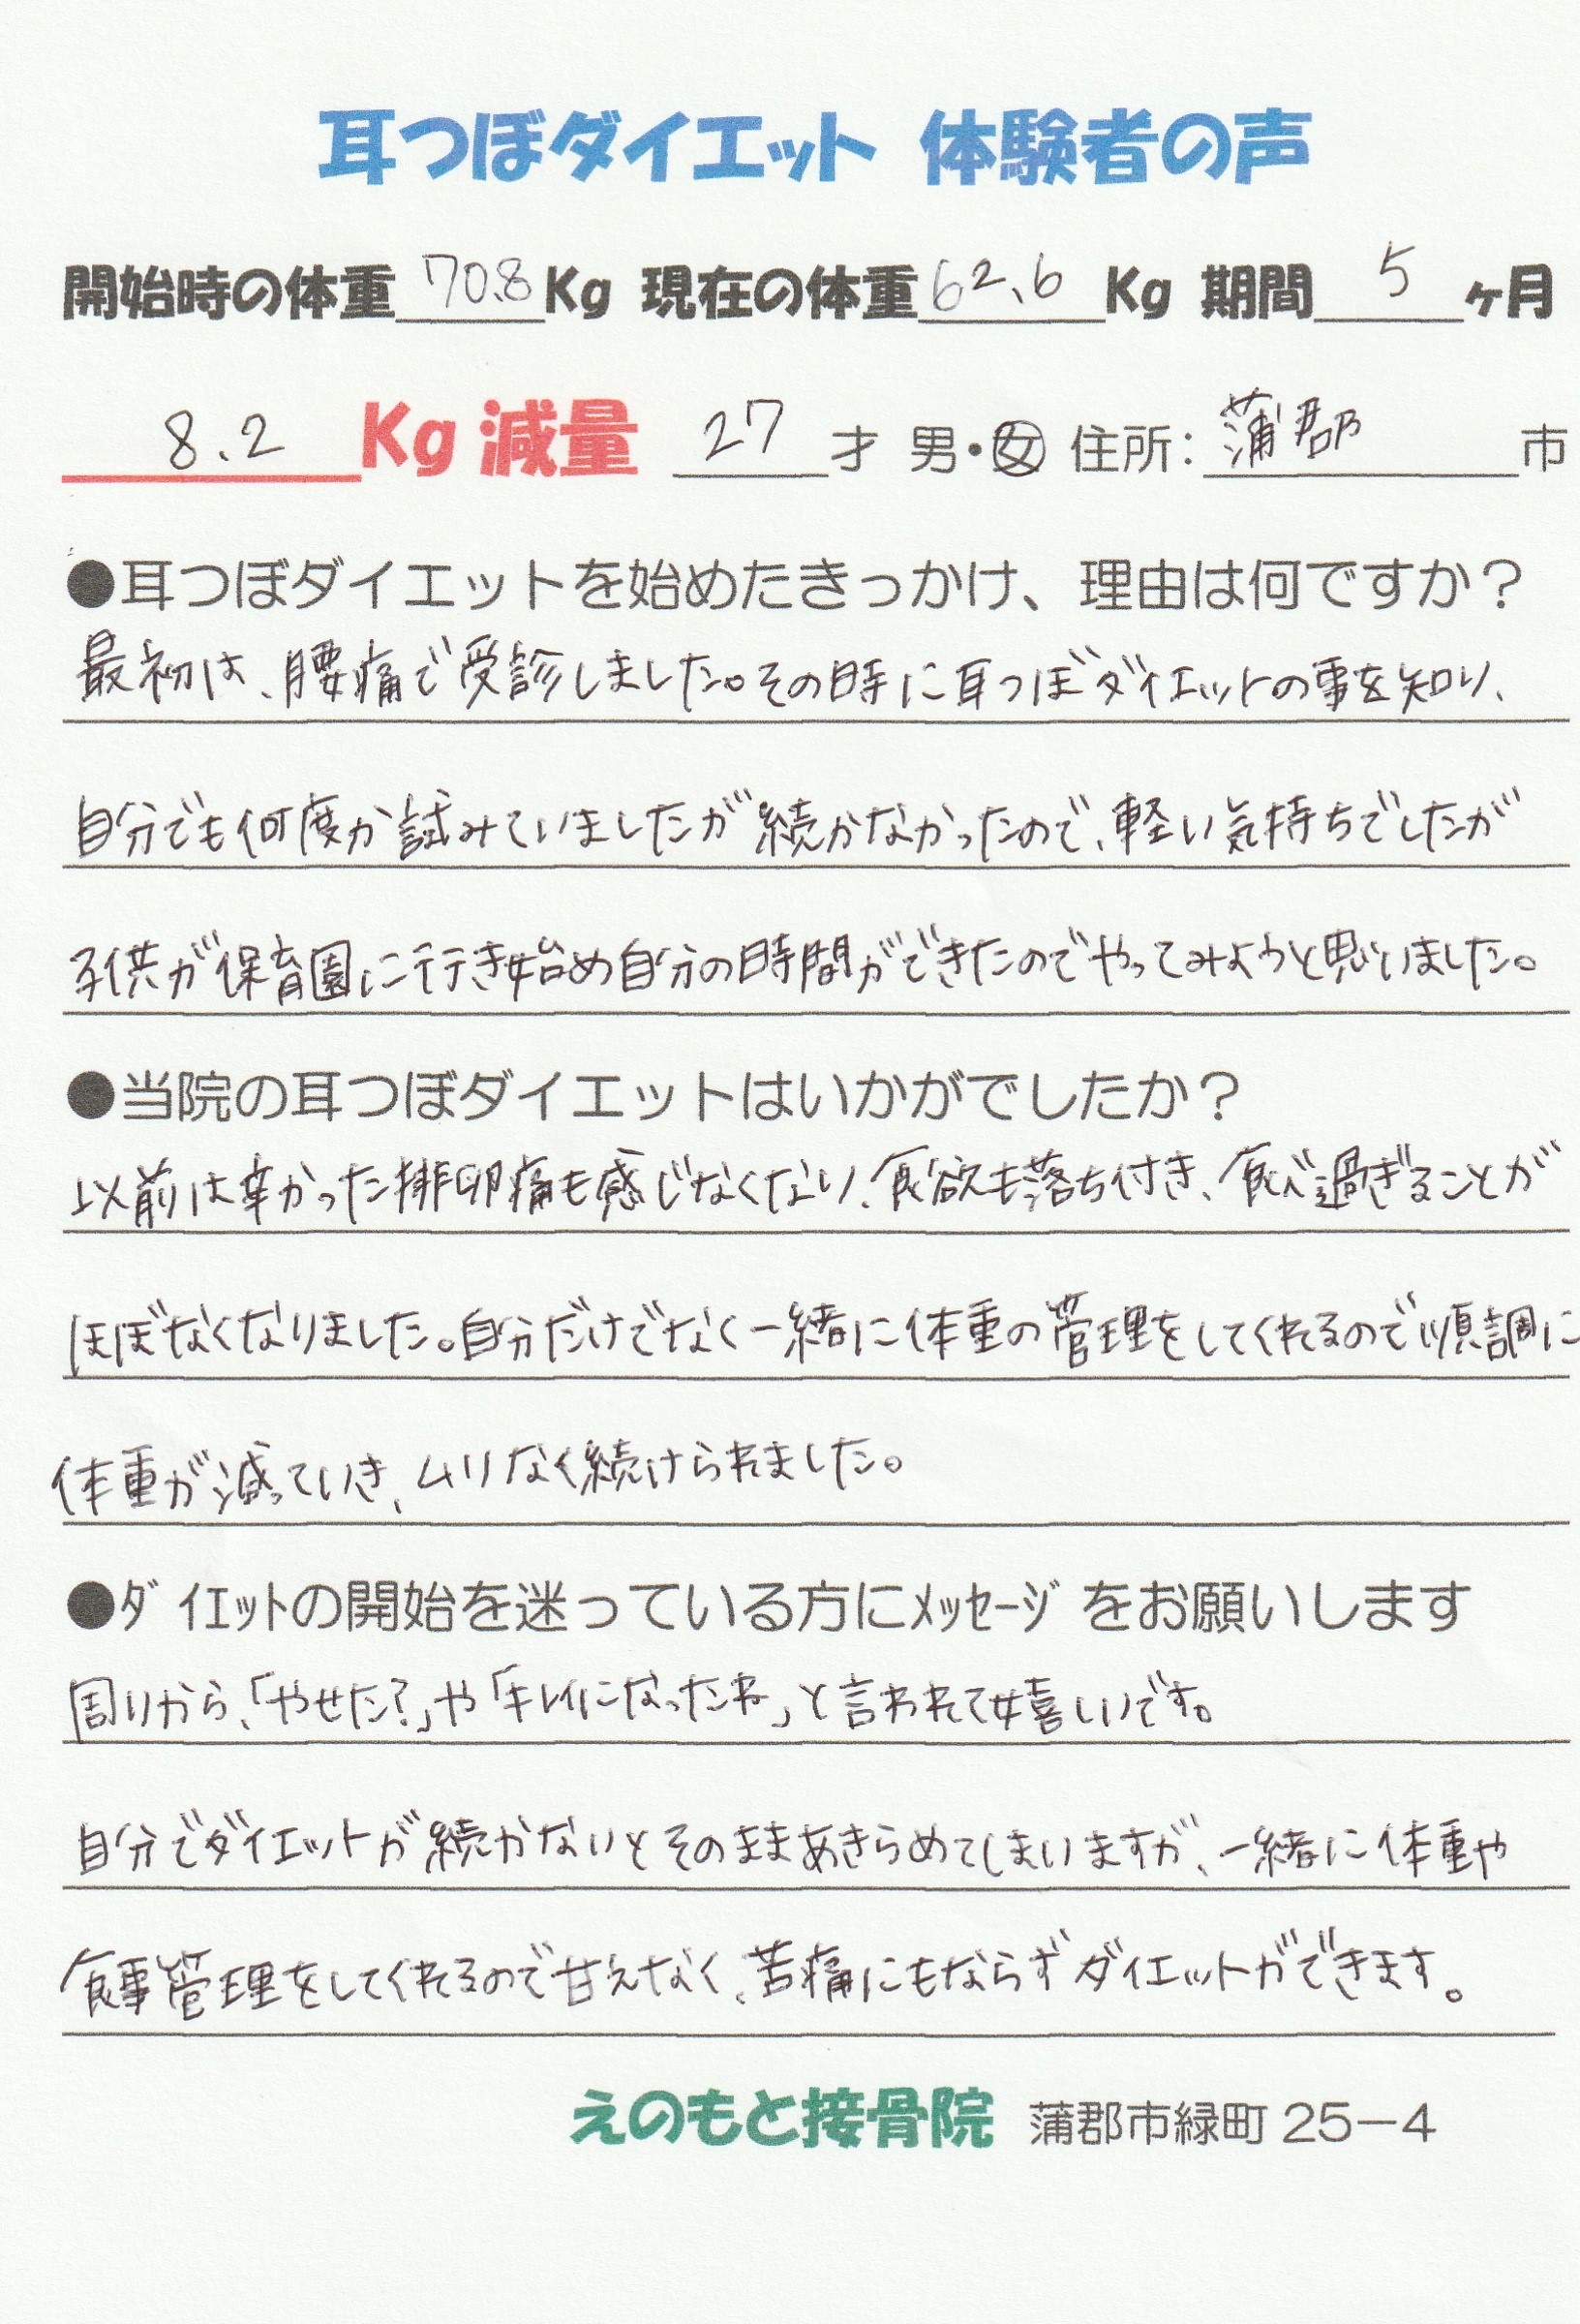 耳つぼダイエット 体験者の声
開始時の体重 70.8 Kg 現在の体重 62.6 Kg 期間 5 ヶ月
8.2 Kg 減量 27 才 男・女 住所：蒲郡 市
●耳つぼダイエットを始めたきっかけ、理由は何ですか？
最初は、腰痛で受診しました。その時に耳つぼダイエットの事を知り、
自分でも何度か試みていましたが続かなかったので、軽い気持ちでしたが
子供が保育園に行き始め自分の時間ができたのでやってみようと思いました。
●当院の耳つぼダイエットはいかがでしたか？
以前は辛かった排卵痛も感じなくなり、食欲も落ち付き、食べ過ぎることが
ほぼなくなりました。自分だけでなく一緒に体重の管理をしてくれるので順調に
体重が減っていき、ムリなく続けられました。
●ﾀﾞｲｴｯﾄの開始を迷っている方にﾒｯｾｰｼﾞをお願いします
周りから、「やせた?」や「キレイになったね」と言われて嬉しいです。
自分でダイエットが続かないとそのままあきらめてしまいますが、一緒に体重や
食事管理をしてくれるので甘えなく、苦痛にもならずダイエットができます。
えのもと接骨院 蒲郡市緑町 25－4